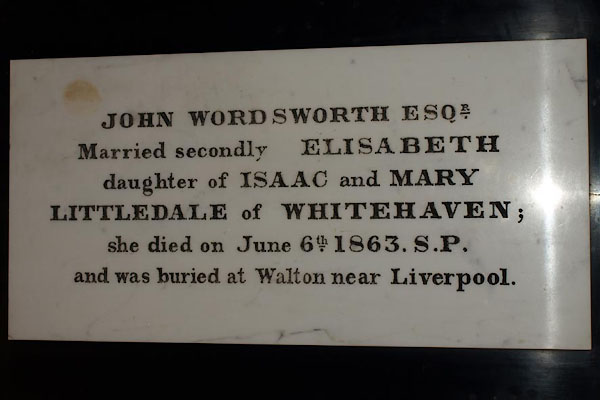 JOHN WORDSWORTH ESQR
Married secondly ELISABETH
daughter of ISAAC and MARY
LITTLEDALE of WHITEHAVEN;
she died on June 6th 1863. S.P.
and was buried at Walton near Liverpool.